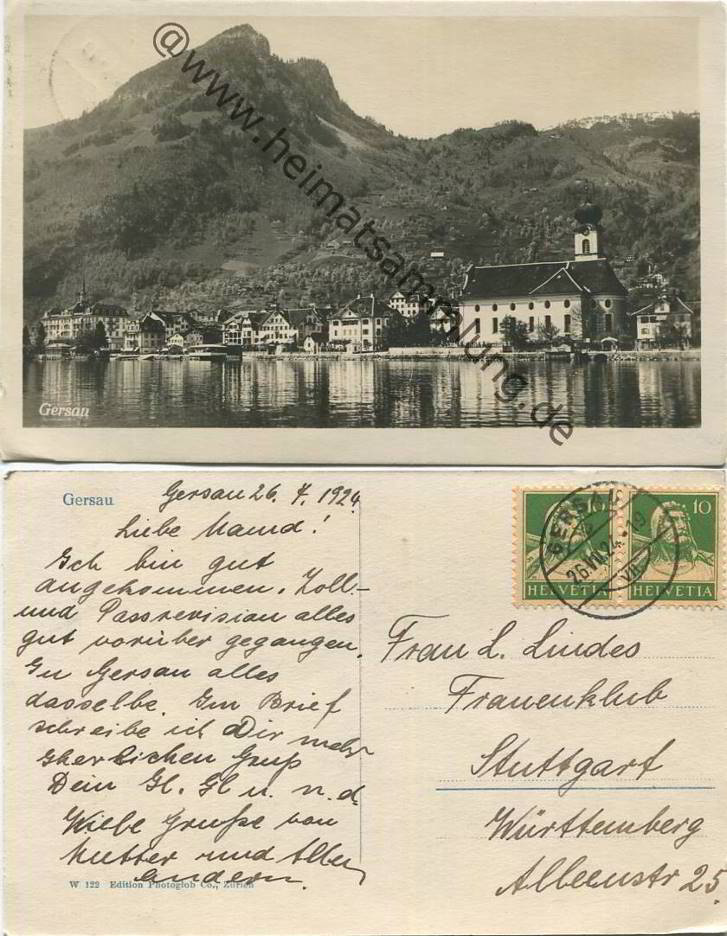 @www.heimatsammlung.de
Gersau
Gersau
Gersau 26. 7. 1924
Liebe
Ich bin gut
angekommen. Zoll-
und Passrevision alles
gut vorüber gegangen.
In Gersau alles
dasselbe. Im Brief
schreibe ich Dir mehr
Grus
Dein
Grüße von
Mutter und Allen
andern.
W 122 Edition Photoglob Co., Zürich
10 10
HELVETIA HELVETIA
GERSAU
26.VII.24.-19
VII
Frau L. Lindes
Frauenklub
Stuttgart
Württemberg
Alleenstr 25.